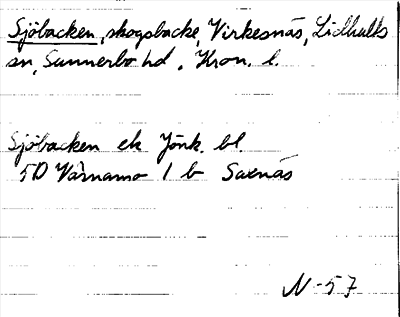 Sjöbacken, skogsbacke, Virkesnäs, Lidhults
sn, Sunnerbo hd, Kron. l.
Sjöbacken ek Jönk. bl.
5D Värnamo 1 b Saxnäs
N-57